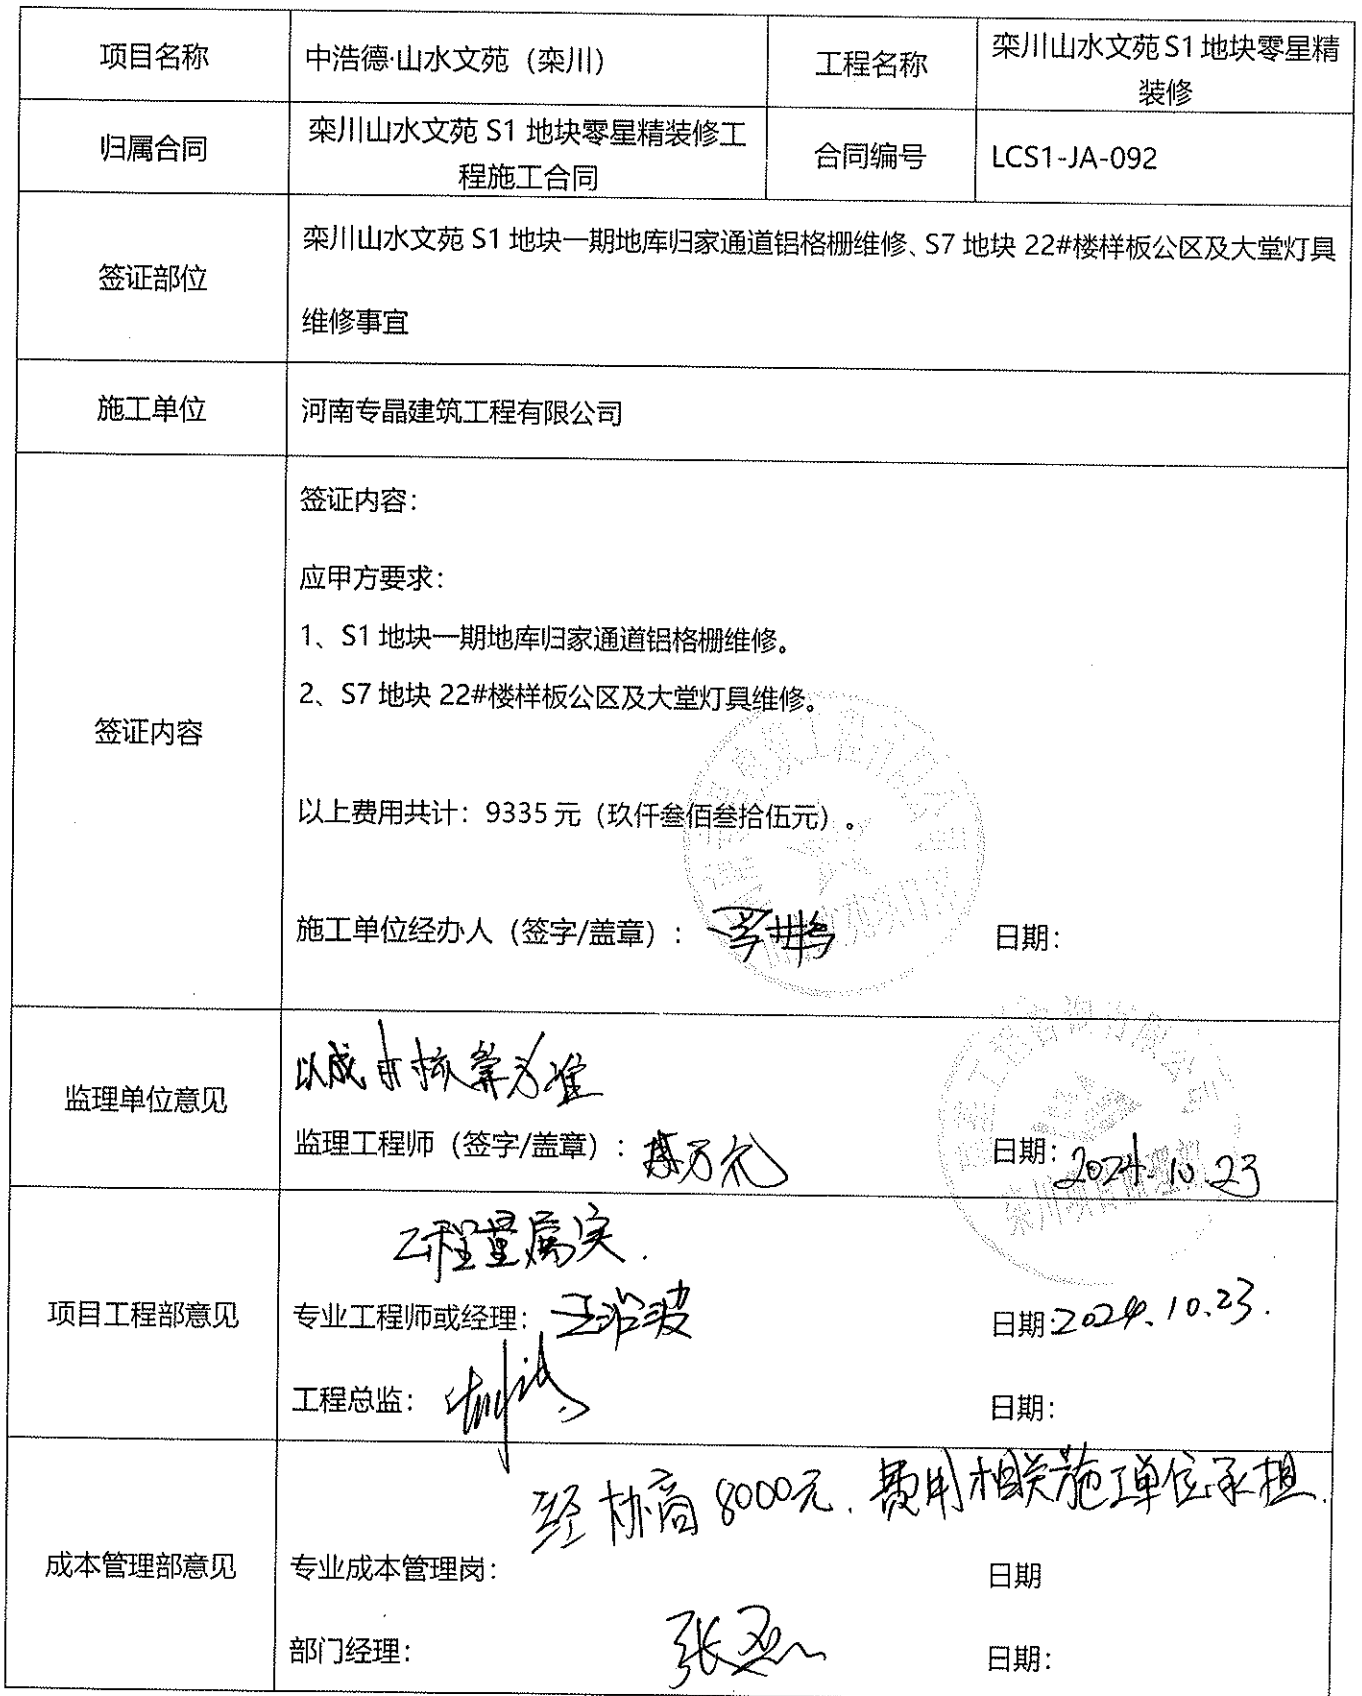 项目名称
中浩德·山水文苑（栾川）
工程名称
栾川山水文苑 S1 地块零星精
装修
归属合同
栾川山水文苑 S1 地块零星精装修工
程施工合同
合同编号
LCS1-JA-092
签证部位
栾川山水文苑 S1 地块一期地库归家通道铝格栅维修、S7 地块 22#楼样板公区及大堂灯具
维修事宜
施工单位
河南专晶建筑工程有限公司
签证内容
签证内容：
应甲方要求：
1、S1 地块一期地库归家通道铝格栅维修。
2、S7 地块 22#楼样板公区及大堂灯具维修。
以上费用共计：9335 元（玖仟叁佰叁拾伍元）。
施工单位经办人（签字/盖章）：
日期：
监理单位意见
以成本核算为准
监理工程师（签字/盖章）：
日期：2024.10.23
栾川项目
项目工程部意见
工程量属实.
专业工程师或经理：
日期:2024.10.23.
工程总监：
日期：
成本管理部意见
经协商8000元.费用相关施工单位承担.
专业成本管理岗：
日期
部门经理：
张
日期：